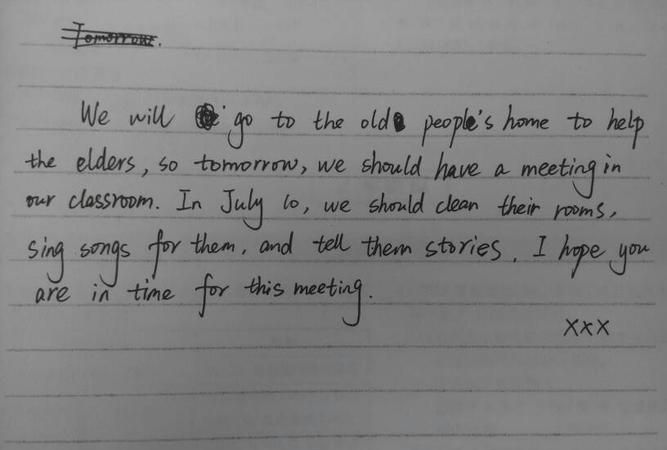 Tomorrow.
We will go to the old people's home to help
the elders, so tomorrow, we should have a meeting in
our classroom. In July 10, we should clean their rooms,
sing songs for them, and tell them stories. I hope you
are in time for this meeting.
XXX